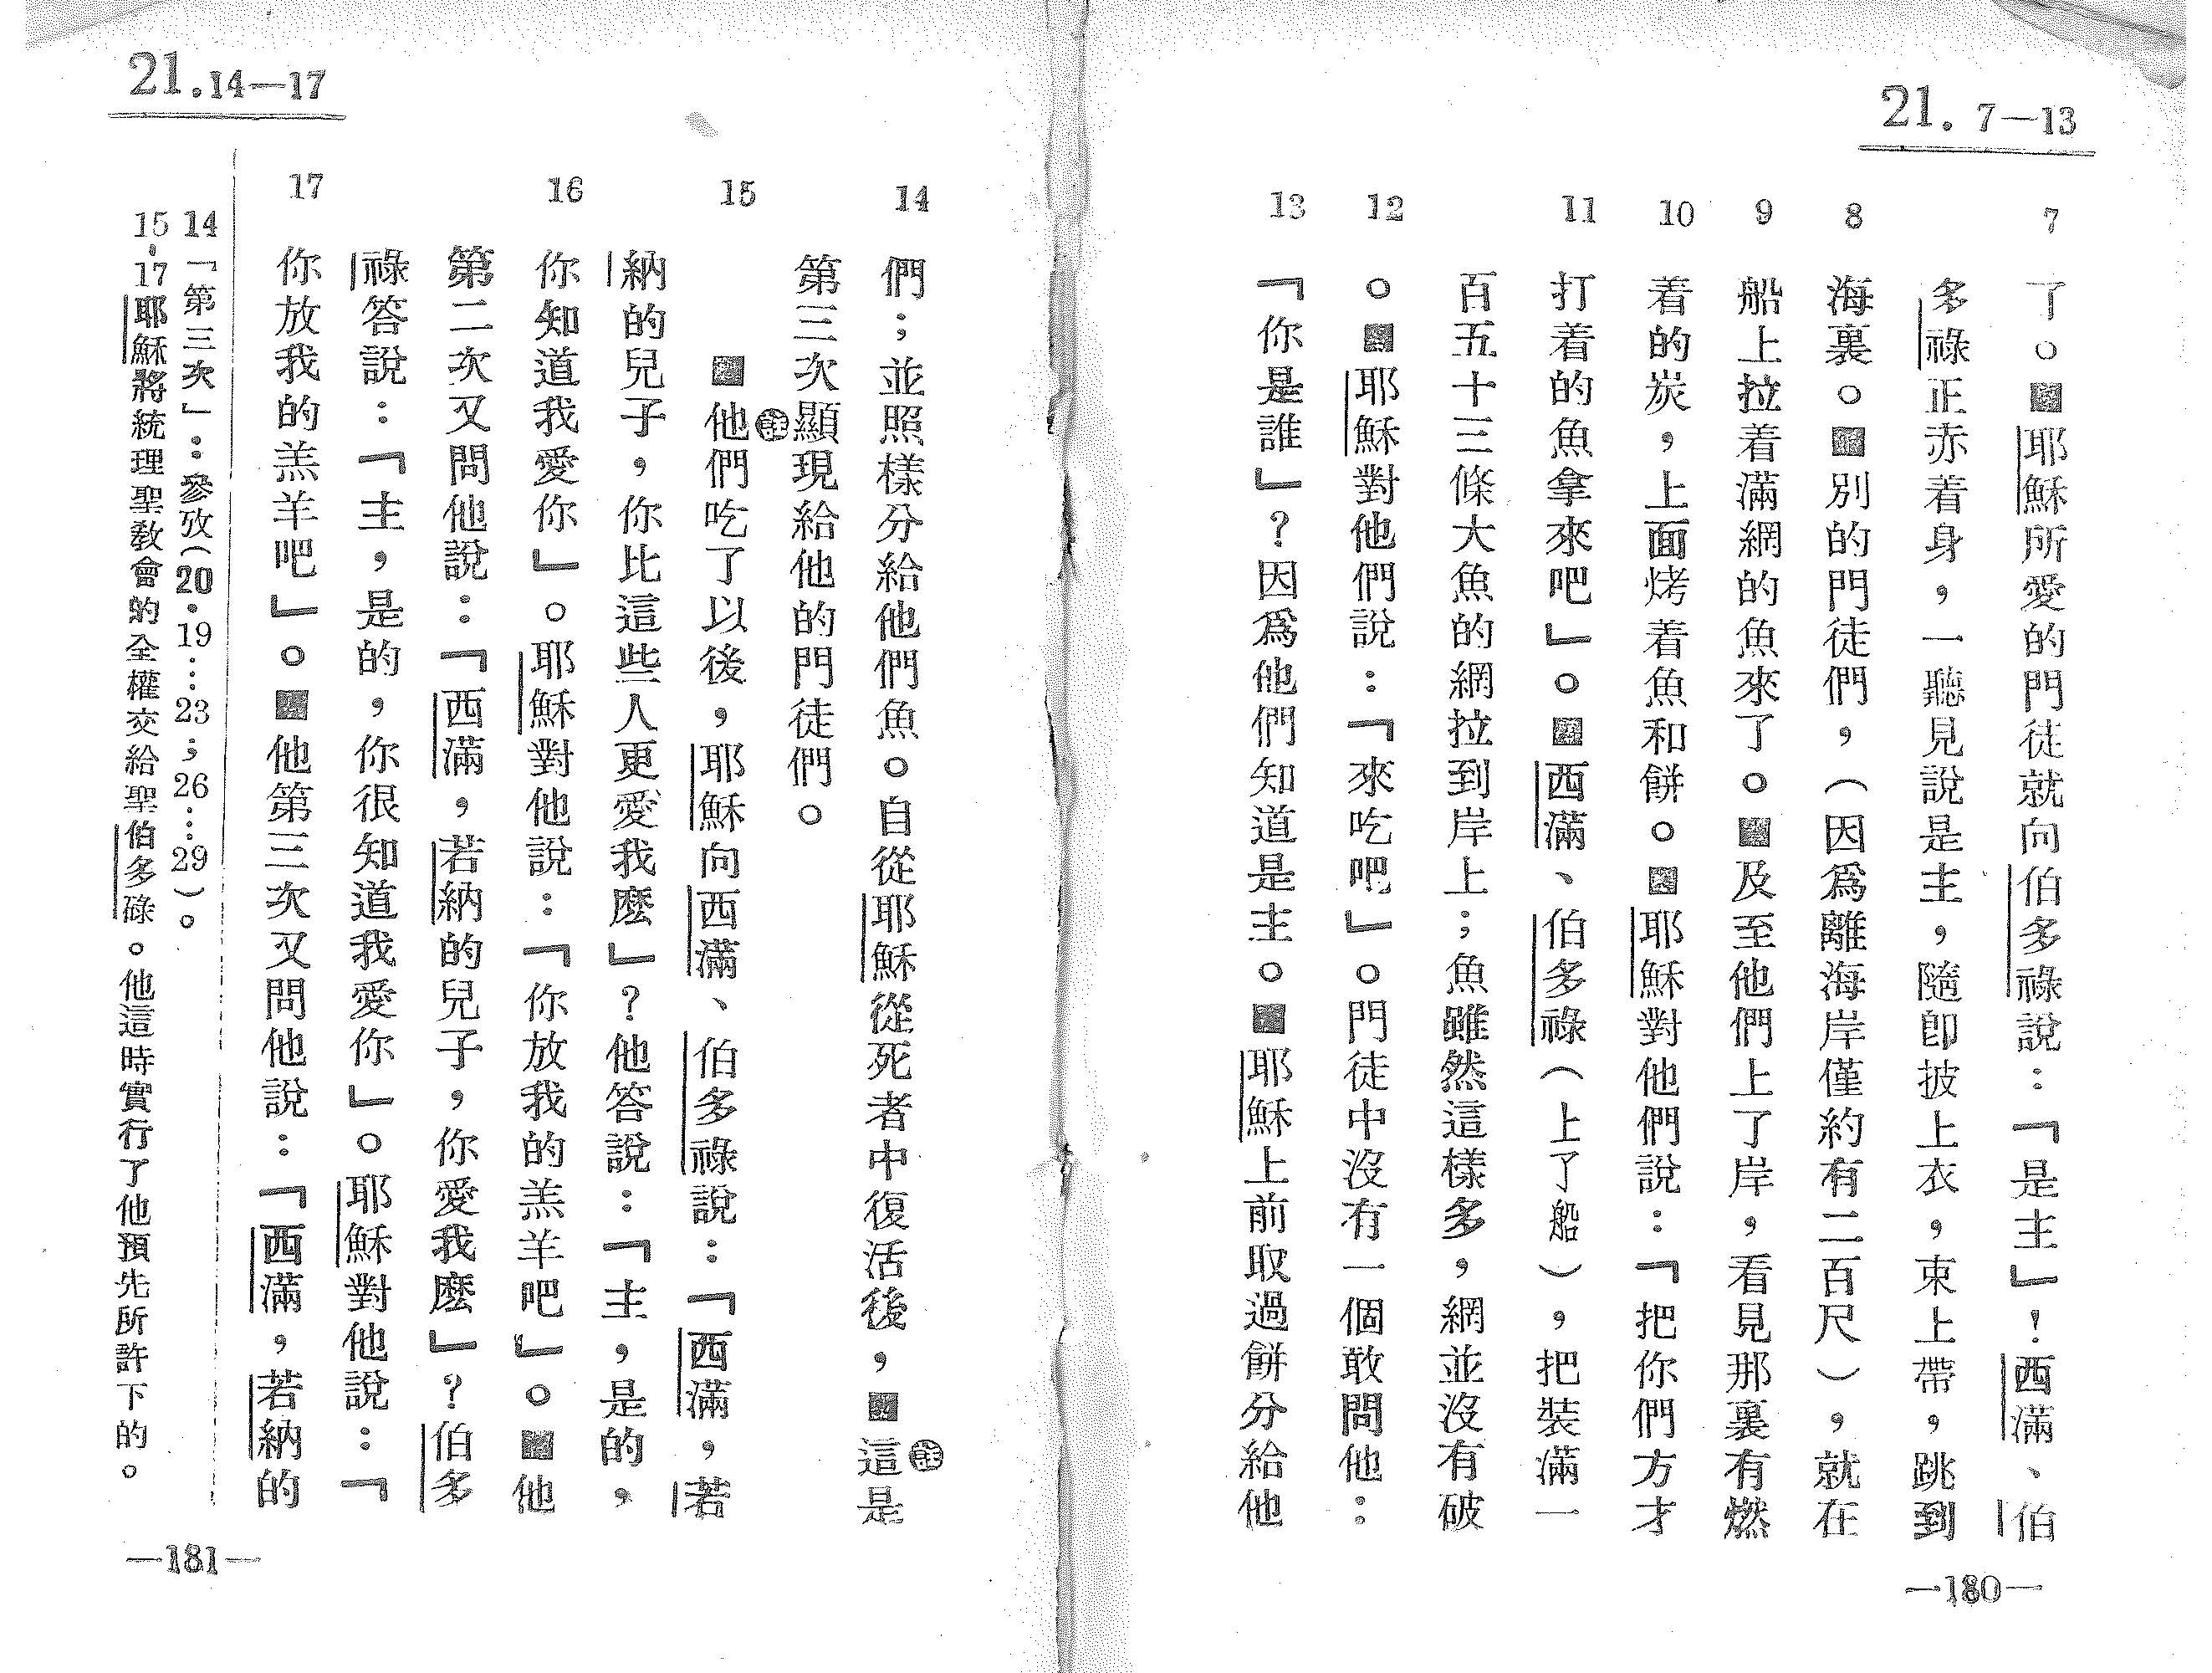 21. 7—13
7
了。■耶穌所愛的門徒就向伯多祿說：「是主」！西滿、伯
多祿正赤着身，一聽見說是主，隨卽披上衣，束上帶，跳到
8
海裏。■別的門徒們，（因爲離海岸僅約有二百尺），就在
9
船上拉着滿網的魚來了。■及至他們上了岸，看見那裏有燃
10
着的炭，上面烤着魚和餅。■耶穌對他們說：「把你們方才
11
打着的魚拿來吧」。■西滿、伯多祿（上了船），把裝滿一
百五十三條大魚的網拉到岸上；魚雖然這樣多，網並沒有破
12
。■耶穌對他們說：「來吃吧」。門徒中沒有一個敢問他：
13
「你是誰」？因爲他們知道是主。■耶穌上前取過餅分給他
—180—
21.14—17
14
們；並照樣分給他們魚。自從耶穌從死者中復活後，■這是
第三次顯現給他的門徒們。
15
■他們吃了以後，耶穌向西滿、伯多祿說：「西滿，若
納的兒子，你比這些人更愛我麼」？他答說：「主，是的，
16
你知道我愛你」。耶穌對他說：「你放我的羔羊吧」。■他
第二次又問他說：「西滿，若納的兒子，你愛我麼」？伯多
祿答說：「主，是的，你很知道我愛你」。耶穌對他說：「
17
你放我的羔羊吧」。■他第三次又問他說：「西滿，若納的
14「第三次」：參攷（20.19…23；26…29）。
15-17耶穌將統理聖教會的全權交給聖伯多碌。他這時實行了他預先所許下的。
—181—